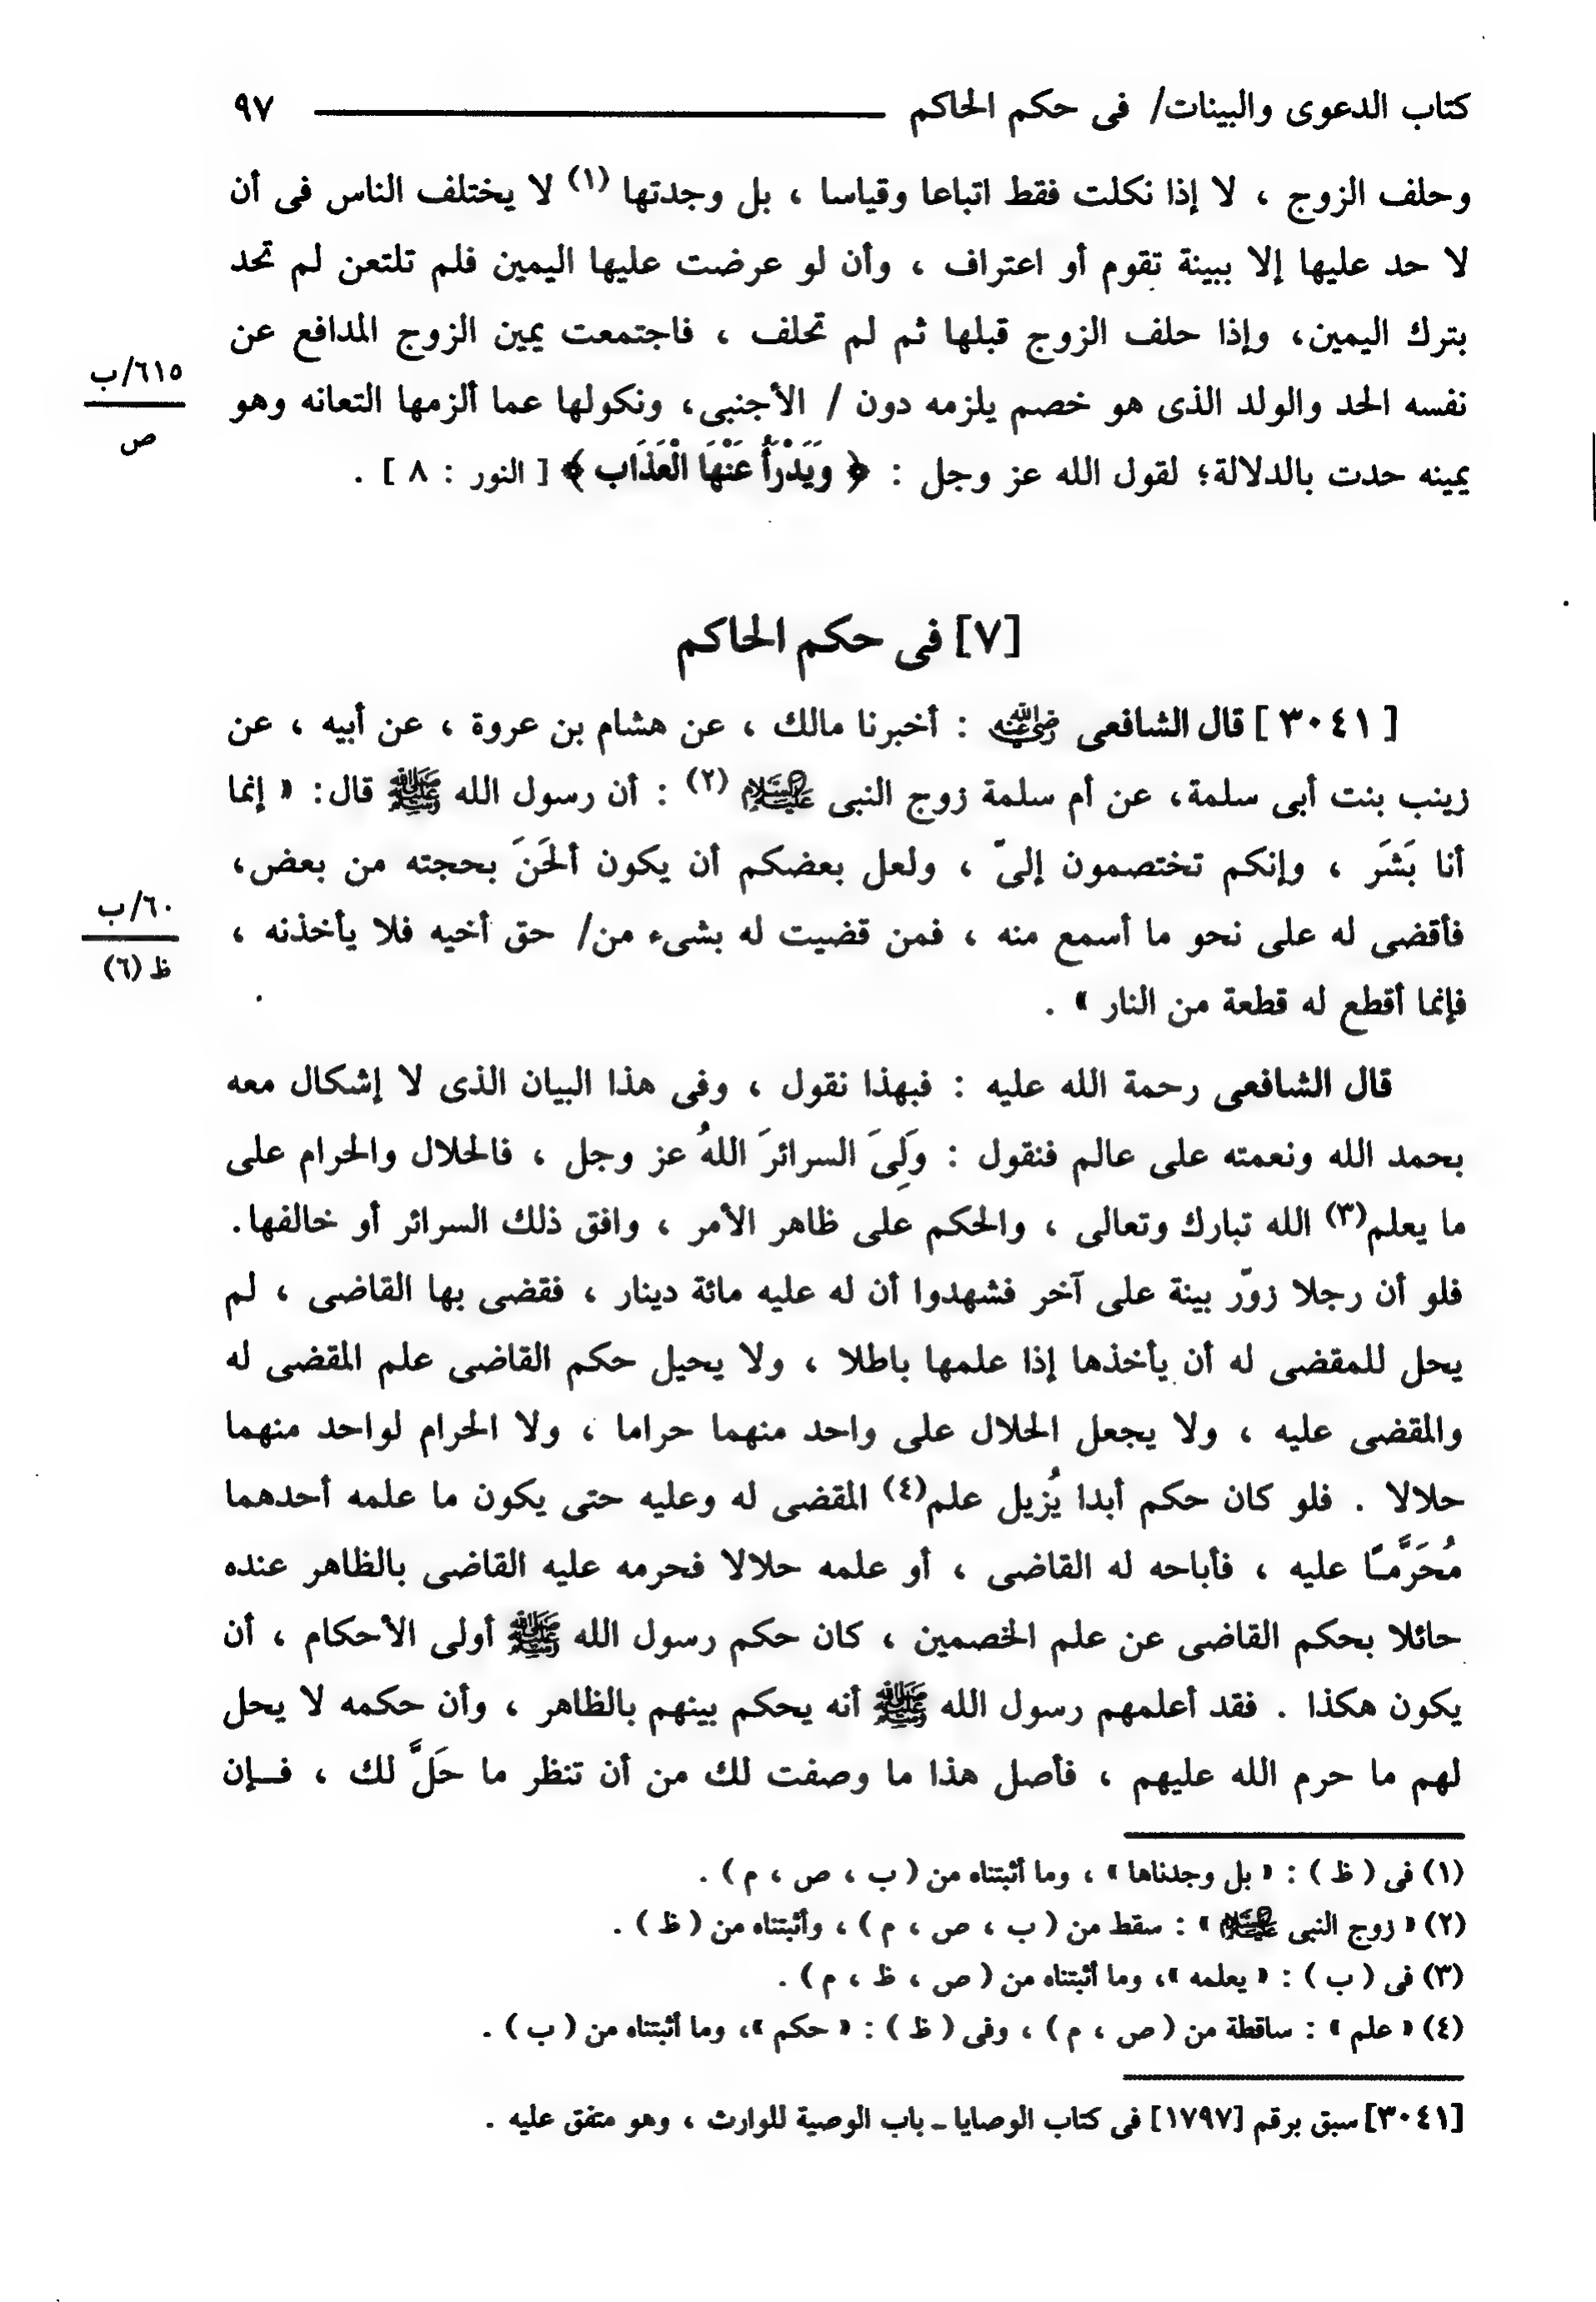 كتاب الدعوى والبينات/ فى حكم الحاكم ٩٧
وحلف الزوج ، لا إذا نكلت فقط اتباعا وقياسا ، بل وجدتها (١) لا يختلف الناس فى أن
لا حد عليها إلا ببينة تقوم أو اعتراف ، وأن لو عرضت عليها اليمين فلم تلتعن لم تحد
بترك اليمين، وإذا حلف الزوج قبلها ثم لم تحلف ، فاجتمعت يمين الزوج المدافع عن
٦١٥/ب
نفسه الحد والولد الذى هو خصم يلزمه دون / الأجنبى، ونكولها عما ألزمها التعانه وهو
ص
يمينه حدت بالدلالة؛ لقول الله عز وجل : ﴿ وَيَدْرَأُ عَنْهَا الْعَذَاب ﴾ [ النور : ٨ ] .
[٧] فى حكم الحاكم
[ ٣٠٤١ ] قال الشافعى رضي الله عنه : أخبرنا مالك ، عن هشام بن عروة ، عن أبيه ، عن
زينب بنت أبى سلمة، عن أم سلمة زوج النبى عليه السلام (٢) : أن رسول الله ﷺ قال: « إنما
أنا بَشَر ، وإنكم تختصمون إلىّ ، ولعل بعضكم أن يكون ألحَنَ بحجته من بعض،
٦٠/ب
فأقضى له على نحو ما أسمع منه ، فمن قضيت له بشىء من/ حق أخيه فلا يأخذنه ،
ظ (٦)
فإنما أقطع له قطعة من النار » .
قال الشافعى رحمة الله عليه : فبهذا نقول ، وفى هذا البيان الذى لا إشكال معه
بحمد الله ونعمته على عالم فنقول : وَلِىَ السرائرَ اللهُ عز وجل ، فالحلال والحرام على
ما يعلم(٣) الله تبارك وتعالى ، والحكم على ظاهر الأمر ، وافق ذلك السرائر أو خالفها.
فلو أن رجلا زوّر بينة على آخر فشهدوا أن له عليه مائة دينار ، فقضى بها القاضى ، لم
يحل للمقضى له أن يأخذها إذا علمها باطلا ، ولا يحيل حكم القاضى علم المقضى له
والمقضى عليه ، ولا يجعل الحلال على واحد منهما حراما ، ولا الحرام لواحد منهما
حلالا . فلو كان حكم أبدا يُزيل علم(٤) المقضى له وعليه حتى يكون ما علمه أحدهما
مُحَرَّمًا عليه ، فأباحه له القاضى ، أو علمه حلالا فحرمه عليه القاضى بالظاهر عنده
حائلا بحكم القاضى عن علم الخصمين ، كان حكم رسول الله ﷺ أولى الأحكام ، أن
يكون هكذا . فقد أعلمهم رسول الله ﷺ أنه يحكم بينهم بالظاهر ، وأن حكمه لا يحل
لهم ما حرم الله عليهم ، فأصل هذا ما وصفت لك من أن تنظر ما حَلَّ لك ، فـإن
(١) فى ( ظ ) : « بل وجدناها » ، وما أثبتناه من ( ب ، ص ، م ) .
(٢) « زوج النبى عليه السلام » : سقط من ( ب ، ص ، م ) ، وأثبتناه من ( ظ ) .
(٣) فى ( ب ) : « يعلمه »، وما أثبتناه من ( ص ، ظ ، م ) .
(٤) « علم » : ساقطة من ( ص ، م ) ، وفى ( ظ ) : « حكم »، وما أثبتناه من ( ب ) .
[٣٠٤١] سبق برقم [١٧٩٧] فى كتاب الوصايا ـ باب الوصية للوارث ، وهو متفق عليه .